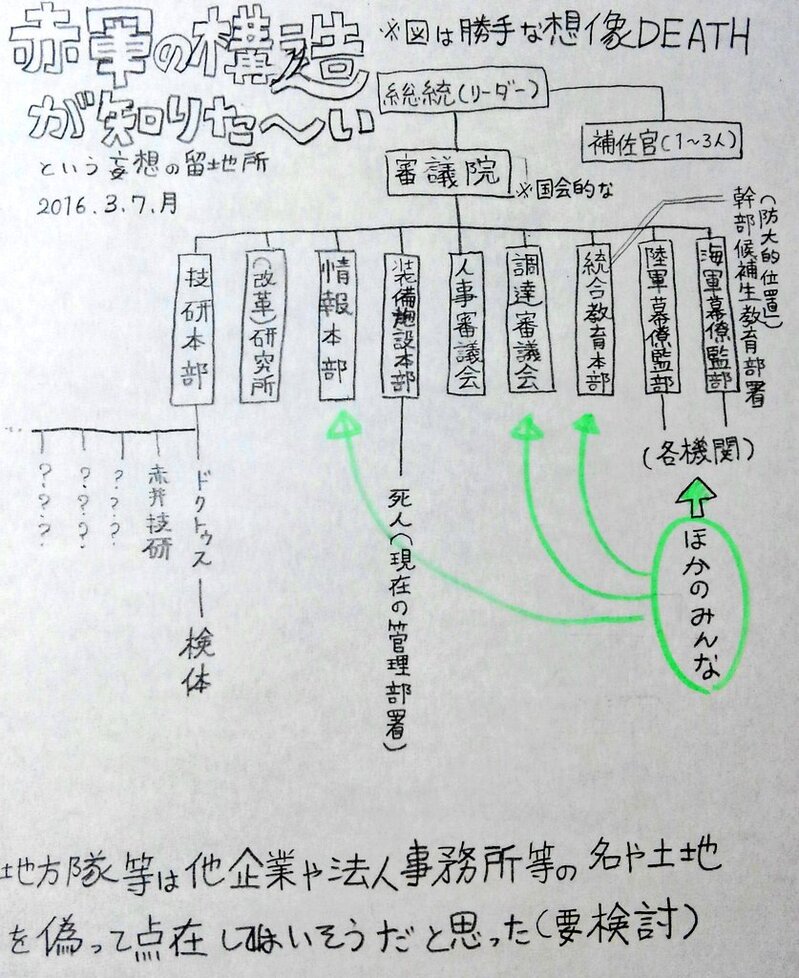 赤軍の構造
が知りた〜い
※図は勝手な想像DEATH
という妄想の留地所
2016.3.7.月
総統(リーダー)
補佐官(1〜3人)
審議院
※国会的な
幹部候補生教育部署
(防大的位置)
技研本部
(改革)研究所
情報本部
装備施設本部
人事審議会
調達審議会
統合教育本部
陸軍幕僚監部
海軍幕僚監部
(各機関)
ほかのみんな
死人(現在の管理部署)
ドクトゥス─検体
赤井技研
???
???
???
地方隊等は他企業や法人事務所等の名や土地
を偽って点在してはいそうだと思った(要検討)